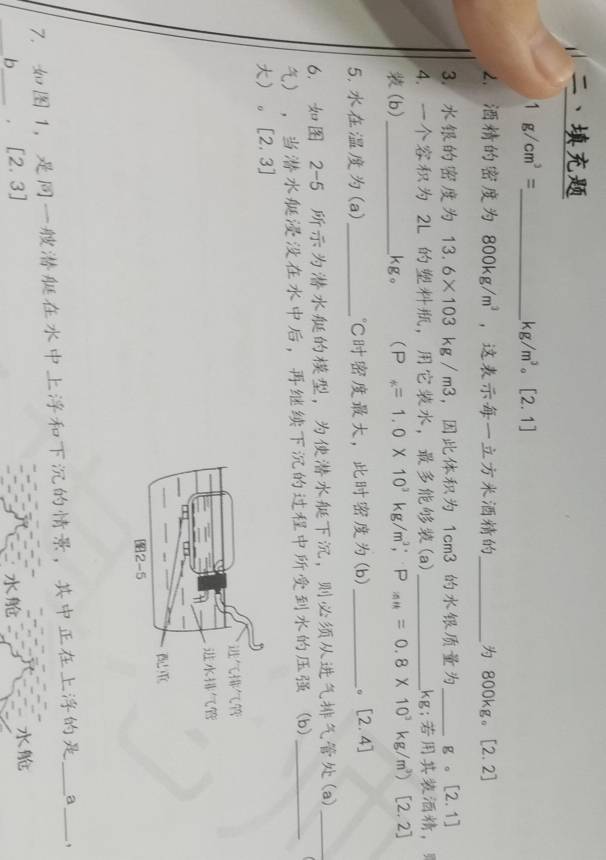 二、填充题
1 g/cm³ =______kg/m³。[2.1]
2. 酒精的密度为 800kg/m³，这表示每一立方米酒精的______为 800kg。[2.2]
3. 水银的密度为 13.6×103 kg/m3，因此体积为 1cm3 的水银质量为____ g 。[2.1]
4. 一个容积为 2L 的塑料瓶，用它装水，最多能够装(a)______kg；若用其装酒精，
装(b)______kg。（P 水= 1.0 X 10³ kg/m³；P 酒精 = 0.8 X 10³ kg/m³）[2.2]
5. 水在温度为(a)______°C时密度最大，此时密度为(b)______。[2.4]
6. 如图 2-5 所示为潜水艇的模型，为使潜水艇下沉，则必须从进气排气管处(a)____
气），当潜水艇浸没在水中后，再继续下沉的过程中所受到水的压强 (b)______（
大）。[2.3]
进气排气管
进水排气管
配重
图2-5
7. 如图 1，是同一艘潜艇在水中上浮和下沉的情景，其中正在上浮的是__a__，
__b__．[2.3]
水舱
水舱